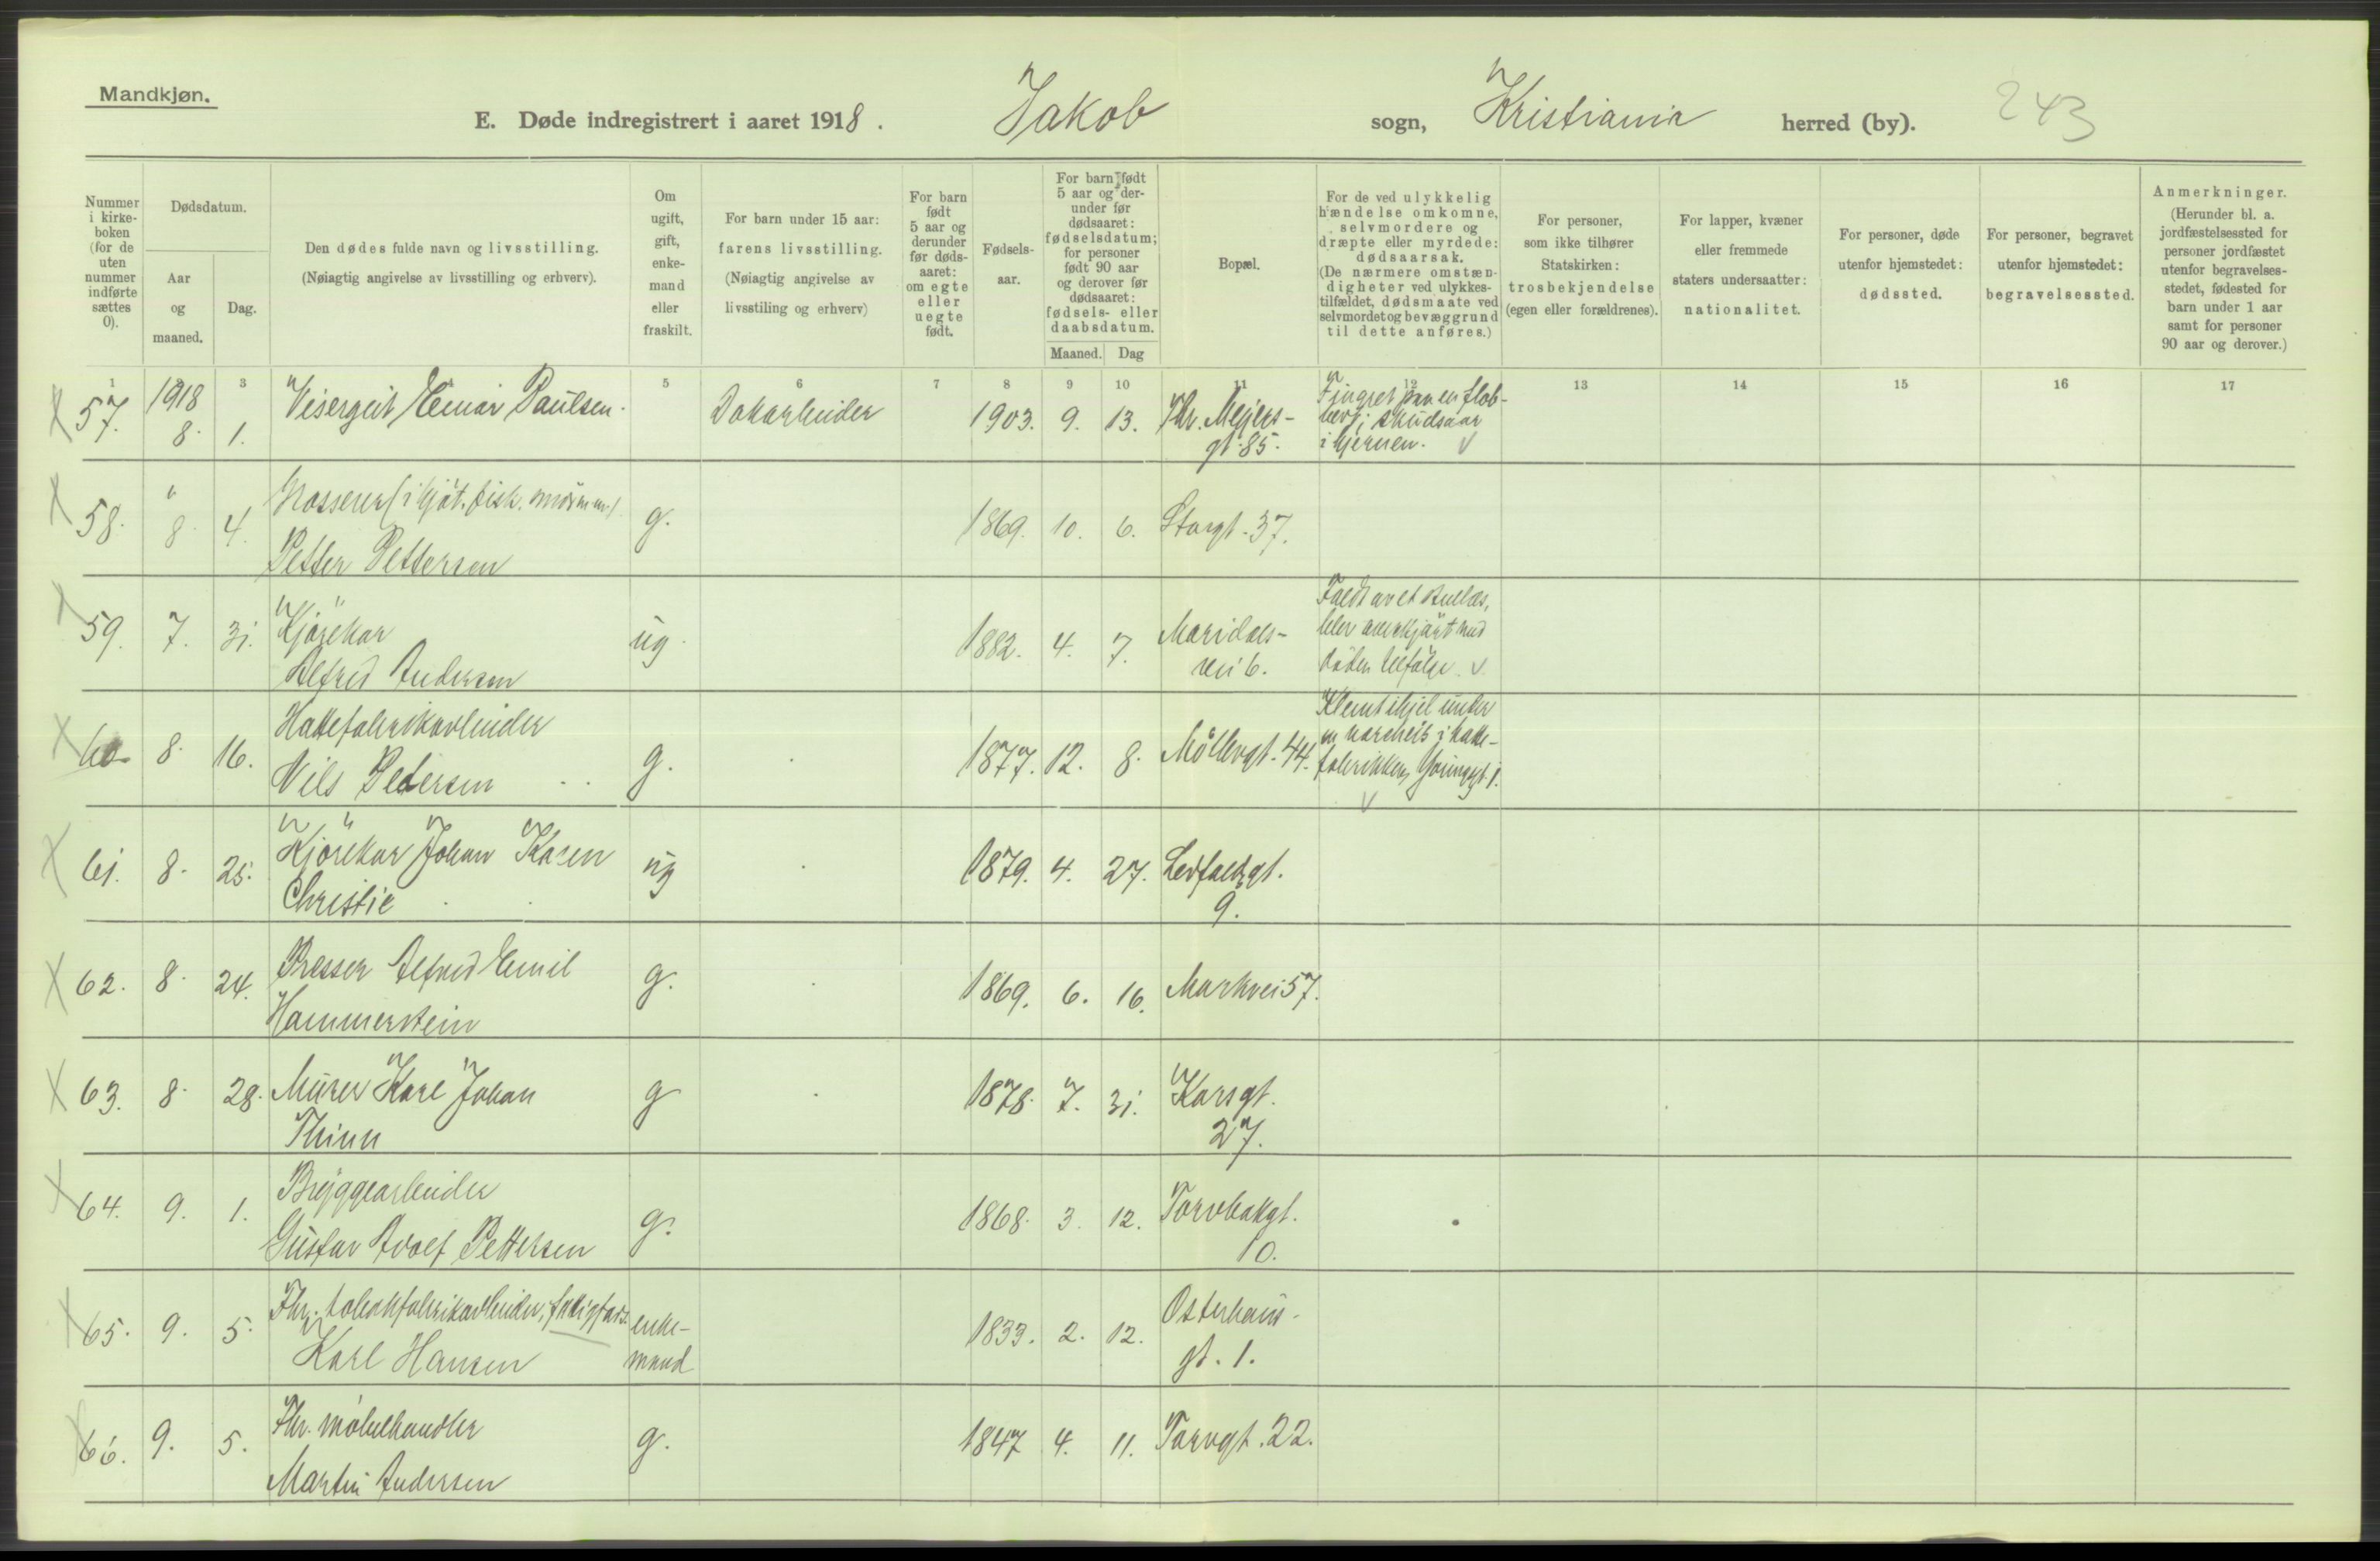 Mandkjøn.
E. Døde indregistrert i aaret 1918. Jakob sogn, Kristiania herred (by). 243
Nummer i kirke-boken (for de uten nummer indførte sættes 0).
Dødsdatum.
Aar og maaned.
Dag.
Den dødes fulde navn og livsstilling.
(Nøiagtig angivelse av livsstilling og erhverv).
Om ugift, gift, enke-mand eller fraskilt.
For barn under 15 aar: farens livsstilling.
(Nøiagtig angivelse av livsstiling og erhverv)
For barn født 5 aar og derunder før døds-aaret: om egte eller uegte født.
Fødsels-aar.
For barn født 5 aar og der-under før dødsaaret: fødselsdatum; for personer født 90 aar og derover før dødsaaret: fødsels- eller daabsdatum.
Maaned. Dag
Bopæl.
For de ved ulykkelig hændelse omkomne, selvmordere og dræpte eller myrdede: dødsaarsak.
(De nærmere omstæn-digheter ved ulykkes-tilfældet, dødsmaate ved selvmordet og bevæggrund til dette anføres.)
For personer, som ikke tilhører Statskirken: trosbekjendelse (egen eller forældrenes).
For lapper, kvæner eller fremmede staters undersaatter: nationalitet.
For personer, døde utenfor hjemstedet: dødssted.
For personer, begravet utenfor hjemstedet: begravelsessted.
Anmerkninger.
(Herunder bl. a. jordfæstelsessted for personer jordfæstet utenfor begravelses-stedet, fødested for barn under 1 aar samt for personer 90 aar og derover.)
1 3 5 6 7 8 9 10 11 12 13 14 15 16 17
57. 1918 8. 1. Visergut Einar Paulsen. Dokarbeider 1903. 9. 13. Thv. Meyers-
gt. 85.
Fingret paa en flob-
bert; skudsaar
i hjernen. V
58. " 8. 4. (i kjøt, fisk,
Petter Pettersen g. 1869. 10. 6. Storgt. 37.
59. 7. 31. Kjørekar
Alfred Andersen ug. 1882. 4. 7. Maridals-
vei 6.
Faldt av et
blev overkjørt med
døden tilfølge. V
60 8. 16. Hattefabrikarbeider
Nils Pedersen g. 1877. 12. 8. Møllergt. 44.
Klemt ihjel under
en i hatte-
fabrikken, Youngsgt. 1.
V
61. 8. 25. Kjørekar Johan Koren
Christie ug 1879. 4. 27. Ledfaldsgt.
9.
62. 8. 24. Presser Alfred Emil
Hammerstein g. 1869. 6. 16. Markvei 57.
63. 8. 28. Murer Karl Johan
Thinn g 1878. 7. 31. Korsgt.
27.
64. 9. 1. Bryggearbeider
Gustav Adolf Pettersen g. 1868. 3. 12. Torvbakgt.
10.
65. 9. 5. Fhv. tobakfabrikarbeider, fattigfors.
Karl Hansen enke-
mand 1833. 2. 12. Osterhaus-
gt. 1.
66. 9. 5. Fhv. møbelhandler
Martin Andersen g. 1847 4. 11. Torvgt. 22.